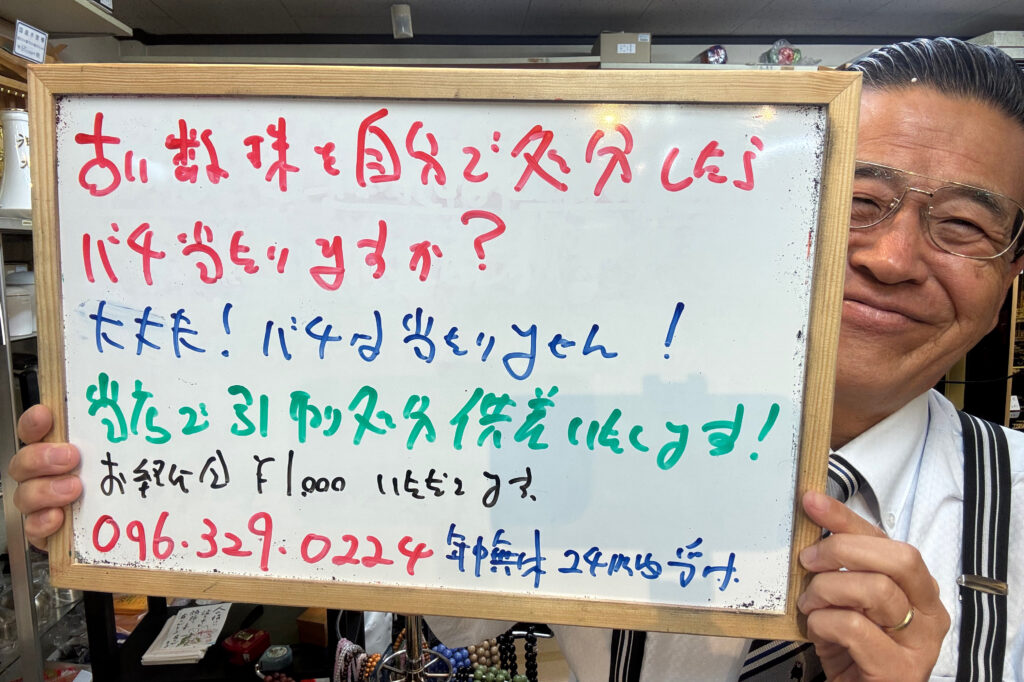 古い数珠を自分で処分したら
バチ当たりますか?
大丈夫! バチは当たりません!
当店で引取り処分供養いたします!
お布施 ¥1,000 いただきます。
096.329.0224 年中無休 24時間受付